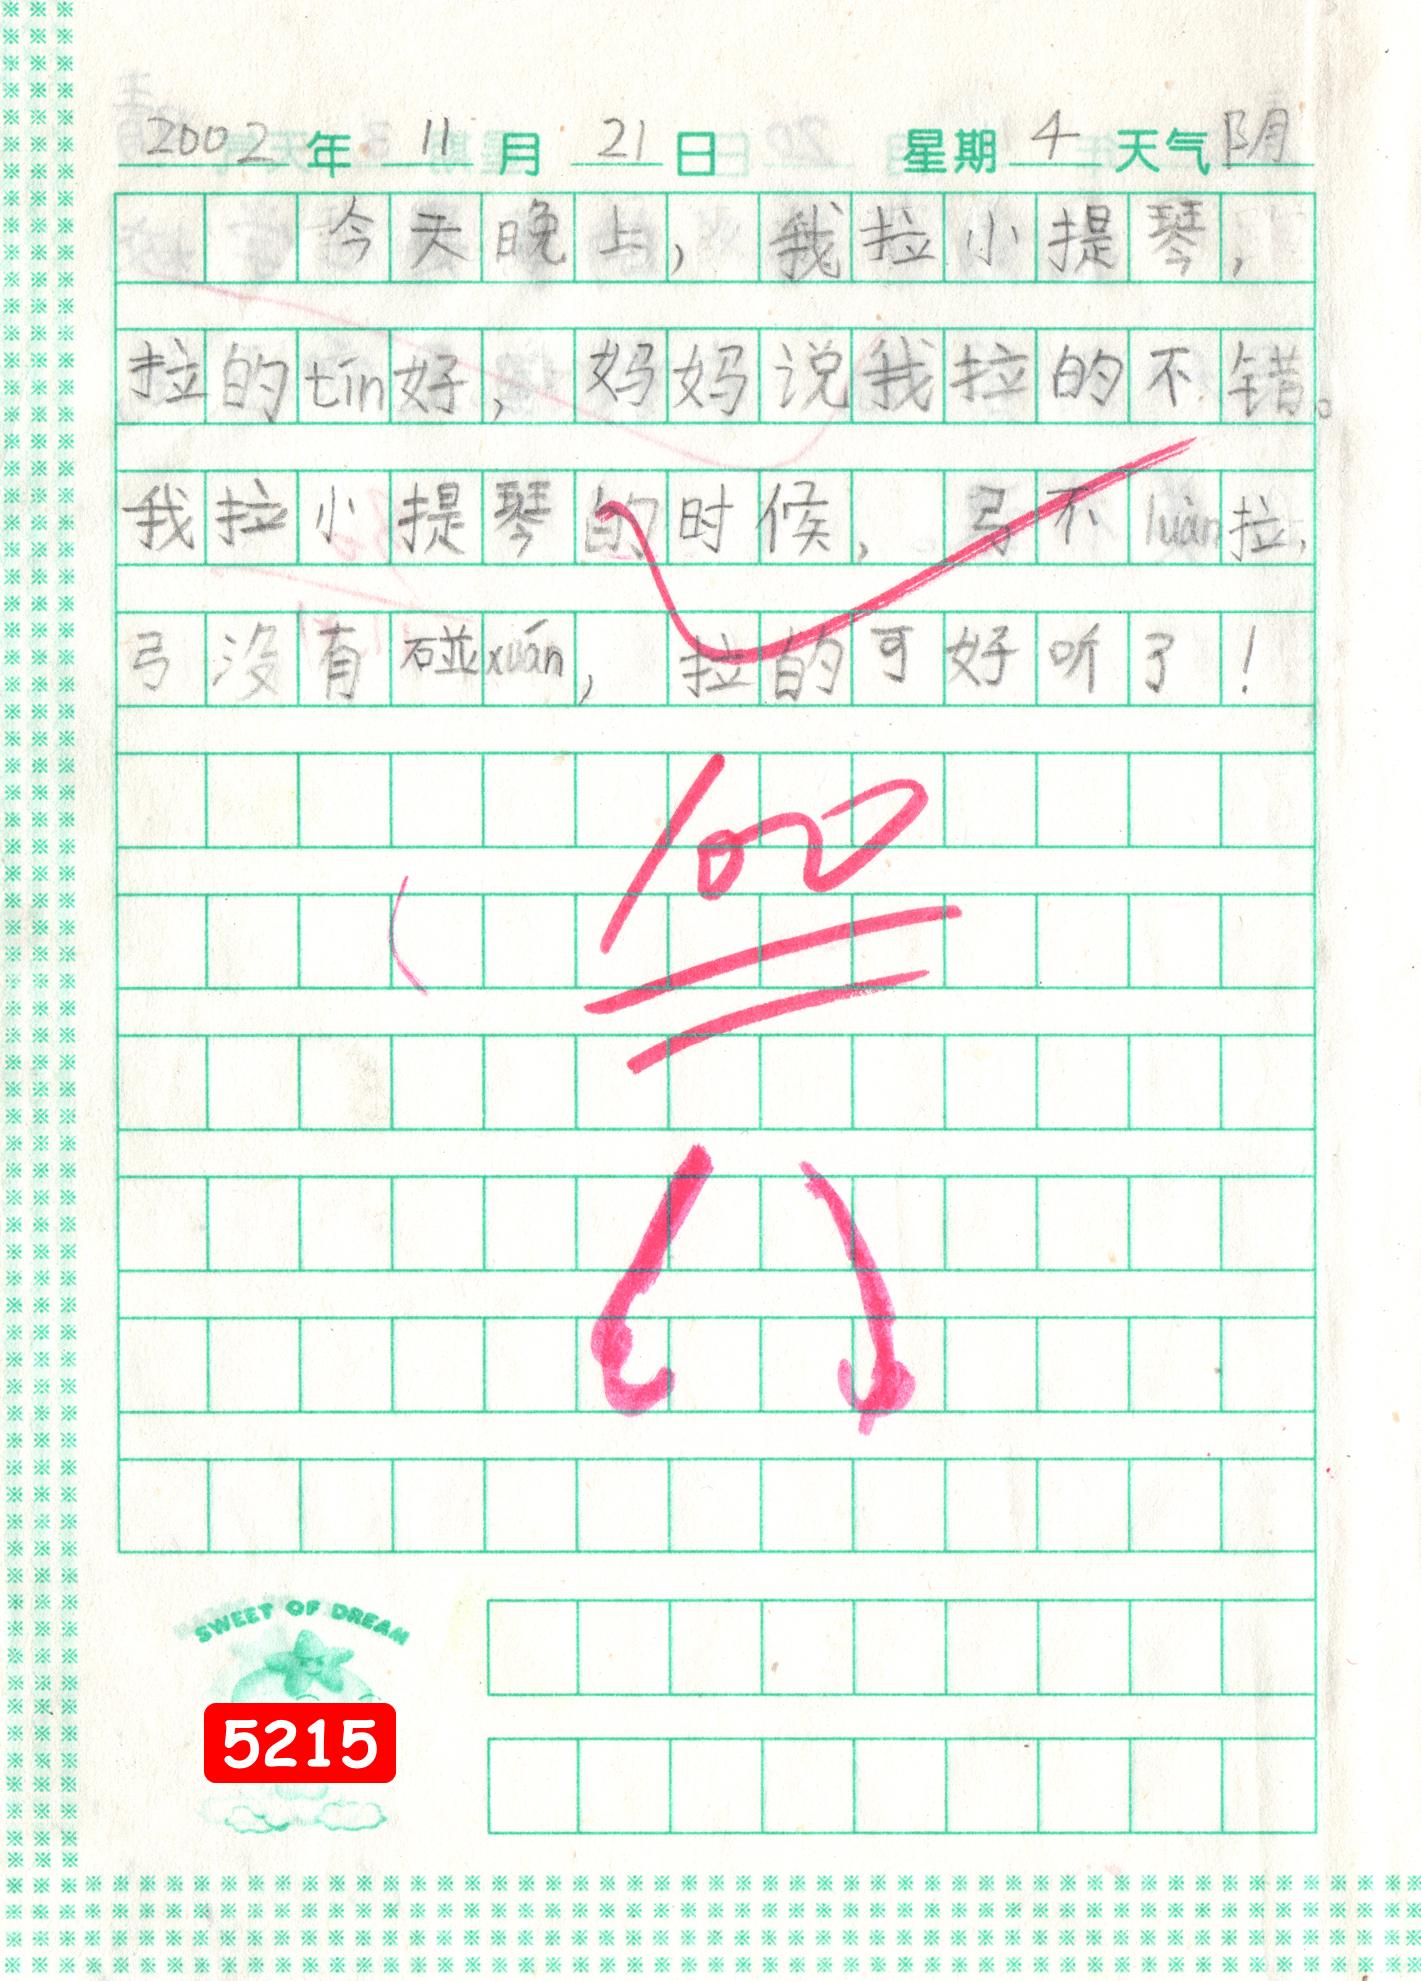 2002 年 11 月 21 日 星期 4 天气 阴
今天晚上，我拉小提琴，
拉的tín好，妈妈说我拉的不错。
我拉小提琴的时候，弓不luàn拉，
弓没有碰xuán，拉的可好听了！
100
SWEET OF DREAM
5215